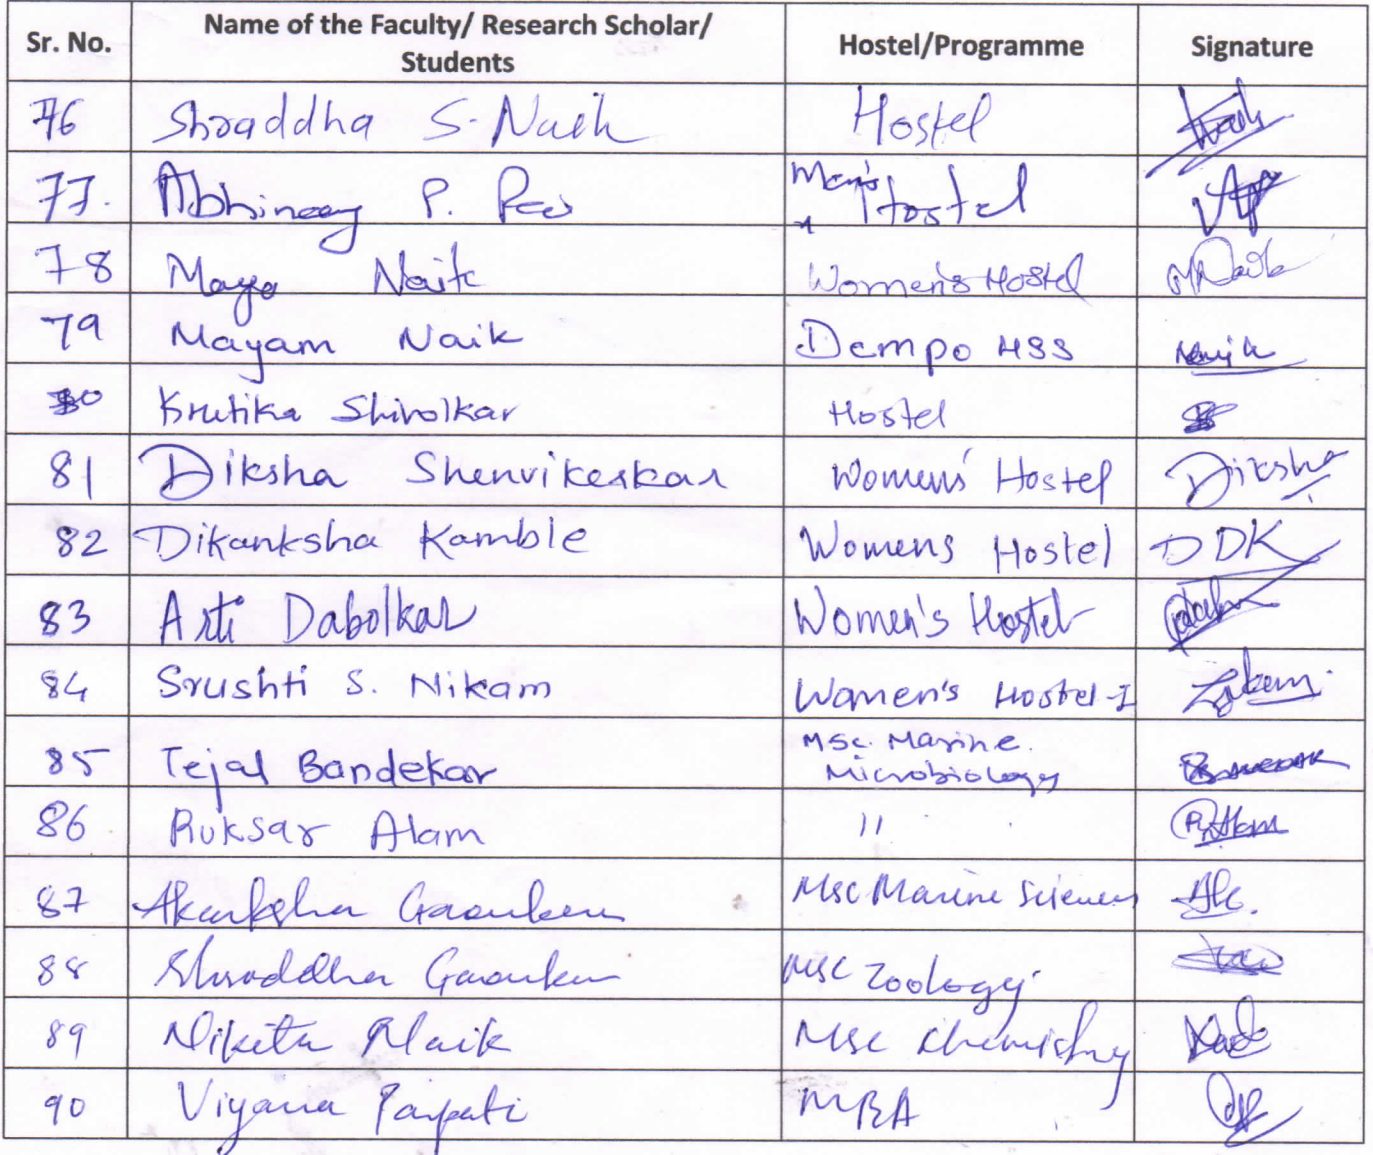 Sr. No. Name of the Faculty/ Research Scholar/ Students Hostel/Programme Signature
76 Shraddha S. Naik Hostel
77. Abhinav P. Men's Hostel
78 Maya Naik Women's Hostel MNaik
79 Mayam Naik Dempo HSS Naik
80 Krutika Shirolkar Hostel
81 Diksha Shenvikerkar Women's Hostel Diksha
82 Dikanksha Kamble Womens Hostel DDK
83 Arti Dabolkar Women's Hostel
84 Srushti S. Nikam Women's Hostel-I
85 Tejal Bandekar MSc. Marine Microbiology
86 Ruksar Alam " RAlam
87 Akanksha Gaonkar Msc Marine Sciences
88 Shraddha Gaonkar Msc Zoology
89 Nikita Naik Msc Chemistry
90 Viyana MBA